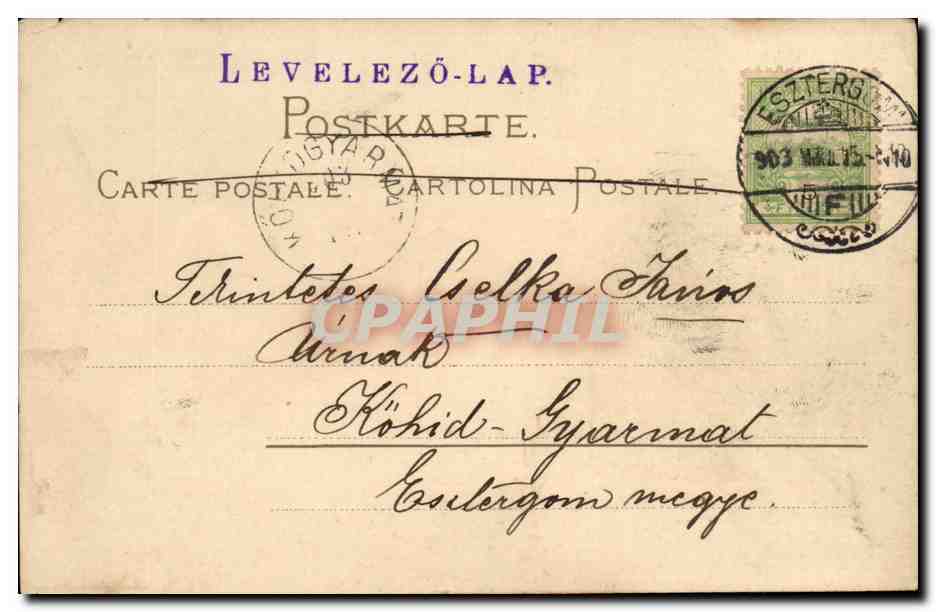 LEVELEZŐ-LAP.
POSTKARTE.
CARTE POSTALE. CARTOLINA POSTALE.
ESZTERGOM
903
KŐHIDGYARMAT
Tekintetes Cselka János
Úrnak
Kőhid-Gyarmat
Esztergom megye.
CPAPHIL